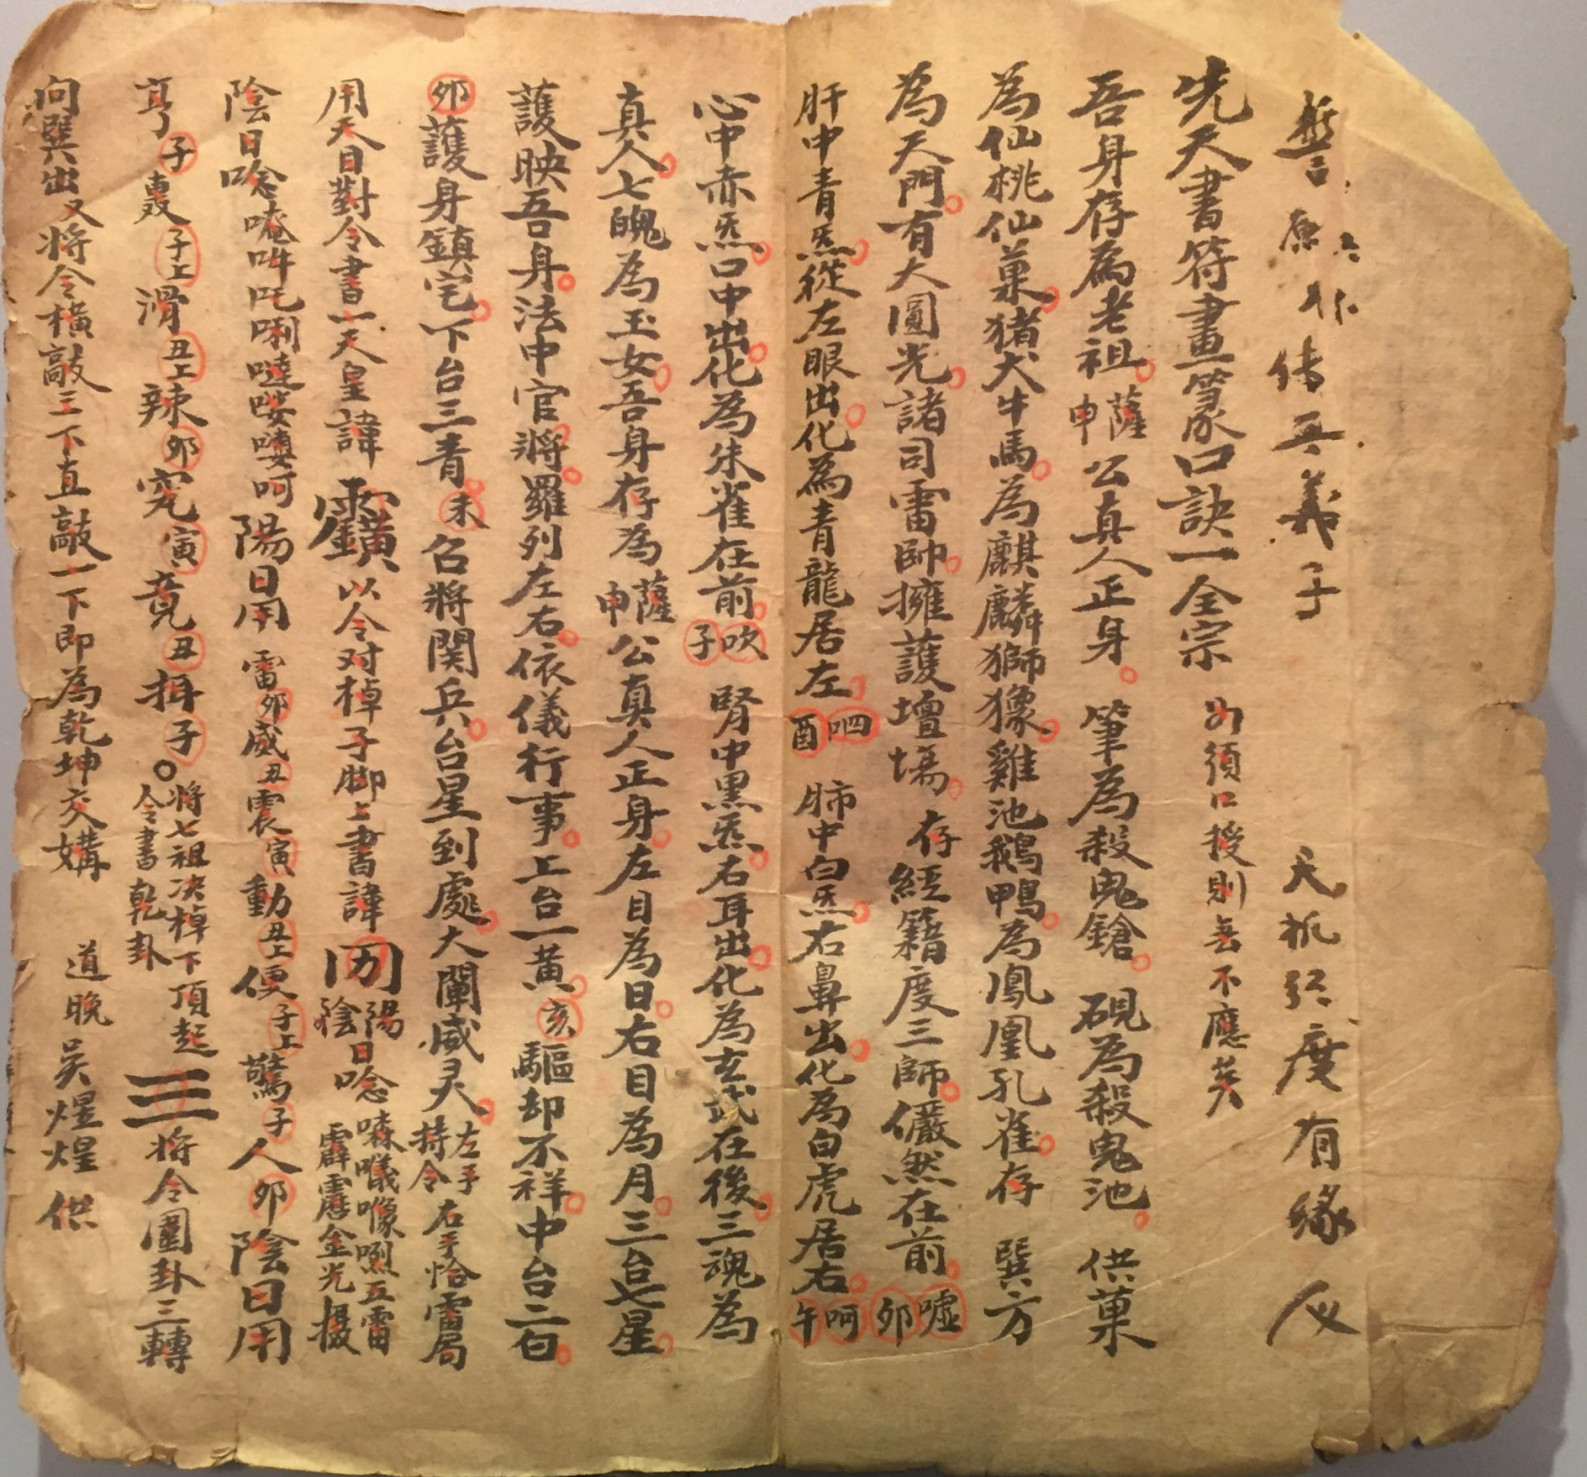 誓愿非傳無義子 天机行度有緣人
先天書符畫篆口訣一全宗 必須口授則無不應矣
吾身存為老祖薩申公真人正身筆為殺鬼鎗硯為殺鬼池供菓
為仙桃仙菓猪犬牛馬為麒麟獅獴雞池鵝鴨為鳳凰孔雀存巽方
為天門有大圓光諸司雷帥擁護壇場存經籍度三師儼然在前噓卯
肝中青炁從左眼出化為青龍居左呬酉肺中白炁右鼻出化為白虎居右呵午
心中赤炁口中出化為朱雀在前吹子腎中黑炁右耳出化為玄武在後三魂為
真人七魄為玉女吾身存為薩申公真人正身左目為日右目為月三台七星
護映吾身法中官將羅列左右依儀行事上台一黃亥驅却不祥中台二白
卯護身鎮宅下台三青未召將関兵台星到處大闡威灵左手持令右手恰雷局
用天目對令書一天皇諱以令对棹子脚上書諱陽陰日唸五雷霹靂金光摄
陰日唸唵吽吒唎噠呵陽日用雷卯威丑震寅動丑上便子上驚子人卯陰日用
亨子轟子上滑丑上辣卯寅竟丑子將七祖决棹下頂起令書乾卦☰將令圈卦三轉
向巽出又將令橫敲三下直敲一下即為乾坤交媾 道晚吴煌煌供